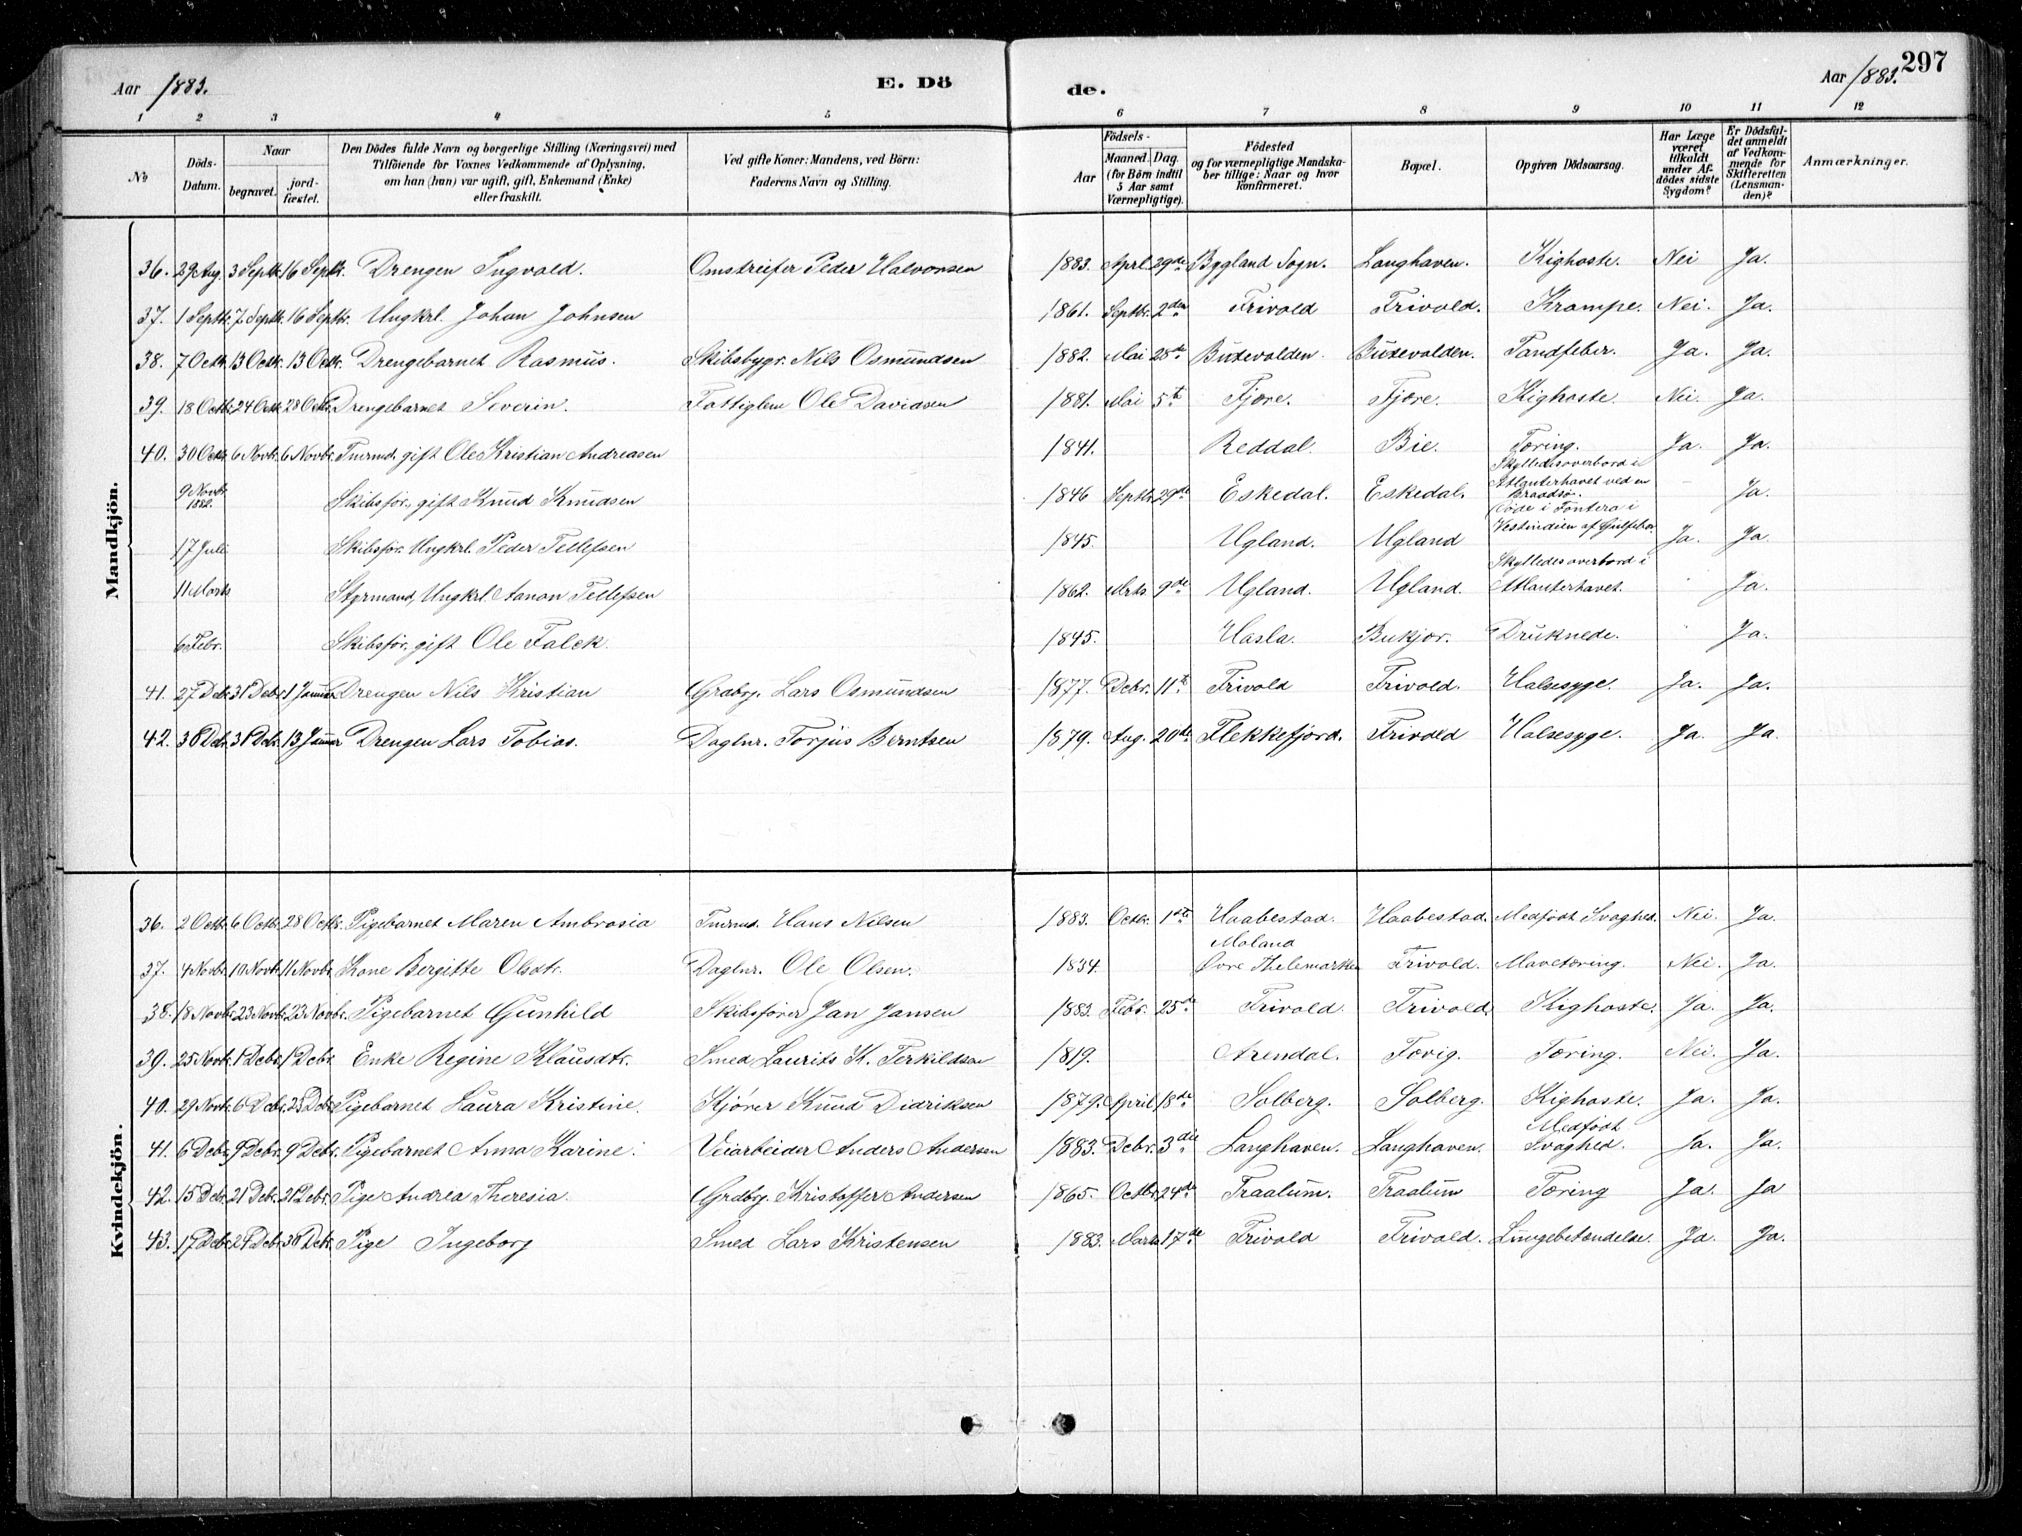 Aar 1883. E. Dö
de. Aar 1883. 297
1 2 3 4 5 6 7 8 9 10 11 12
№ Döds-Datum. Naar begravet. jordfæstet. Den Dödes fulde Navn og borgerlige Stilling (Næringsvei) med Tilföiende for Voxnes Vedkommende af Oplysning, om han (hun) var ugift, gift, Enkemand (Enke) eller fraskilt. Ved gifte Koner: Mandens, ved Börn: Faderens Navn og Stilling. Födsels- Aar Maaned. Dag. (for Börn indtil 5 Aar samt Værnepligtige). Födested og for værnepligtige Mandskaber tillige: Naar og hvor konfirmeret. Bopæl. Opgiven Dödsaarsag. Har Læge været tilkaldt under Afdödes sidste Sygdom? Er Dödsfaldet anmeldt af Vedkommende for Skifteretten (Lensmanden)? Anmærkninger.
Mandkjön.
36. 29 Aug. 3 Septb. 16 Septb. Drengen Ingvald. Omstreifer Peder Halvorsen 1883. Aprl. 29de Bygland Sogn. Langhaven. Kighoste. Nei Ja.
37. 1 Septb. 7 Septb. 16 Septbr. Ungkrl. Johan Johnsen 1861. Septbr. 2den Frivold Frivold. Krampe. Nei. Ja.
38. 7 Octb. 13 Octb. 13 Octb. Drengebarnet Rasmus. Skibsbygr. Nils Osmundsen 1882. Mai 28de Buxevolden. Buxevolden. Tandfeber. Ja. Ja.
39. 18 Octb. 24 Octb. 28 Octb. Drengebarnet Severin. Fattiglem Ole Davidsen 1881. Mai 5te Fjære. Fjære. Kighoste. Nei. Ja.
40. 30 Octb. 6 Novbr. 6 Novbr. Tmrmd. gift Ole Kristian Andreasen 1841. Reddal. Bie. Tæring. Ja. Ja.
9 Novbr. 1882. Skibsfør. gift Knud Knudsen 1846 Septb. 29de Eskedal. Eskedal. Skylledes overbord i Atlanterhavet ved en Braadsø. Ja.
17 Juli Skibsfør. Ungkrl. Peder Tellefsen 1845. Ugland. Ugland Døde i Fontera i Vestindien af Ja. Ja.
11 Marts Styrmand, Ungkrl. Aanon Tellefsen 1862. Mrts. 9de Ugland. Ugland. Skylledes overbord i Atlanterhavet. Ja.
6 Febr. Skibsfør. gift Ole Falck. 1845. Hasla. Bukjør. Druknede. Ja.
41. 27 Debr. 31 Debr. 1 Januar Drengen Nils Kristian Grdbrg. Lars Osmundsen 1877. Debr. 11te Frivold Frivold. Halsesyge. Ja. Ja.
42. 30 Debr. 31 Debr. 13 Januar Drengen Lars Tobias. Daglnr. Torjus Berntsen 1879. Aug. 20de Flekkefjord. Frivold Halsesyge. Ja. Ja.
Kvindekjön.
36. 2 Octb. 6 Octb. 28 Octb. Pigebarnet Maren Ambrosia Tmrmd. Hans Nilsen 1883. Octb. 1ste Haabestad. Haabestad. Medfødt Svaghed. Nei. Ja.
37. 4 Novbr. 10 Novbr. 11 Novbr. Kone Bergitte Olsdtr. Daglnr. Ole Olsen. 1834. Moland Øvre Thelemarken Frivold. Mavetæring. Nei. Ja.
38. 18 Novbr. 23 Novbr. 23 Novbr. Pigebarnet Gunhild Skibsfører Jan Jansen 1883. Febr. 25de Frivold. Frivold. Kighoste. Ja. Ja.
39. 25 Novb. 1 Debr. 1 Debr. Enke Regine Klausdtr. Smed Laurits K. Terkildsen 1819. Arendal. Fævig. Tæring. Nei. Ja.
40. 29 Novb. 6 Debr. 25 Debr. Pigebarnet Laura Kristine. Skjører Knud Didriksen 1879. April 18de Solberg. Solberg. Kighoste. Ja. Ja.
41. 6 Debr. 9 Debr. 9 Debr. Pigebarnet Anna Karine. Veiarbeider Anders Andersen 1883. Debr. 3die Langhaven. Langhaven. Medfødt Svaghed. Ja. Ja.
42. 15 Debr. 21 Debr. 21 Debr. Pige Andrea Theresia. Grdbrg. Kristoffer Andersen 1865. Octbr. 24de Traalum. Traalum Tæring Ja. Ja
43. 17 Debr. 29 Debr. 30 Debr. Pige Ingeborg Smed Lars Kristensen 1883. Marts 17de Frivold Frivold. Lungebetændelse. Ja. Ja.